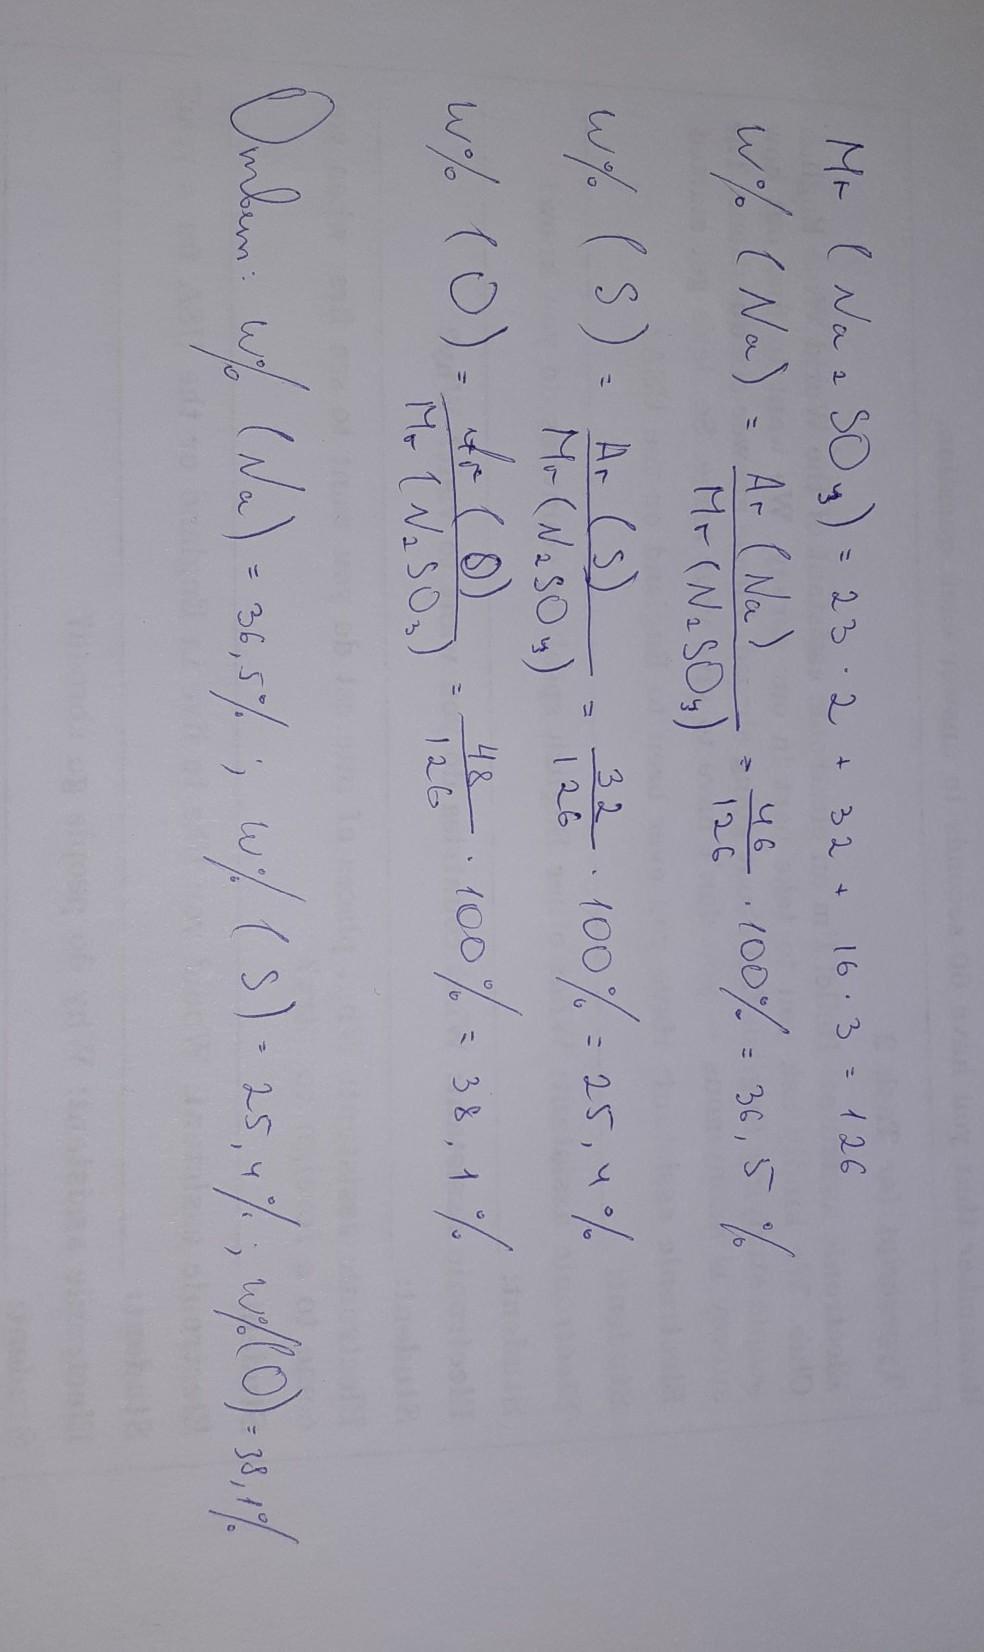 Mr (Na2SO3) = 23 · 2 + 32 + 16 · 3 = 126
w% (Na) = Ar (Na) / Mr (N2SO3) = 46 / 126 · 100% = 36,5 %
w% (S) = Ar (S) / Mr (N2SO3) = 32 / 126 · 100% = 25,4 %
w% (O) = Ar (O) / Mr (N2SO3) = 48 / 126 · 100% = 38,1 %
Ответ: w% (Na) = 36,5% ; w% (S) = 25,4% ; w% (O) = 38,1%